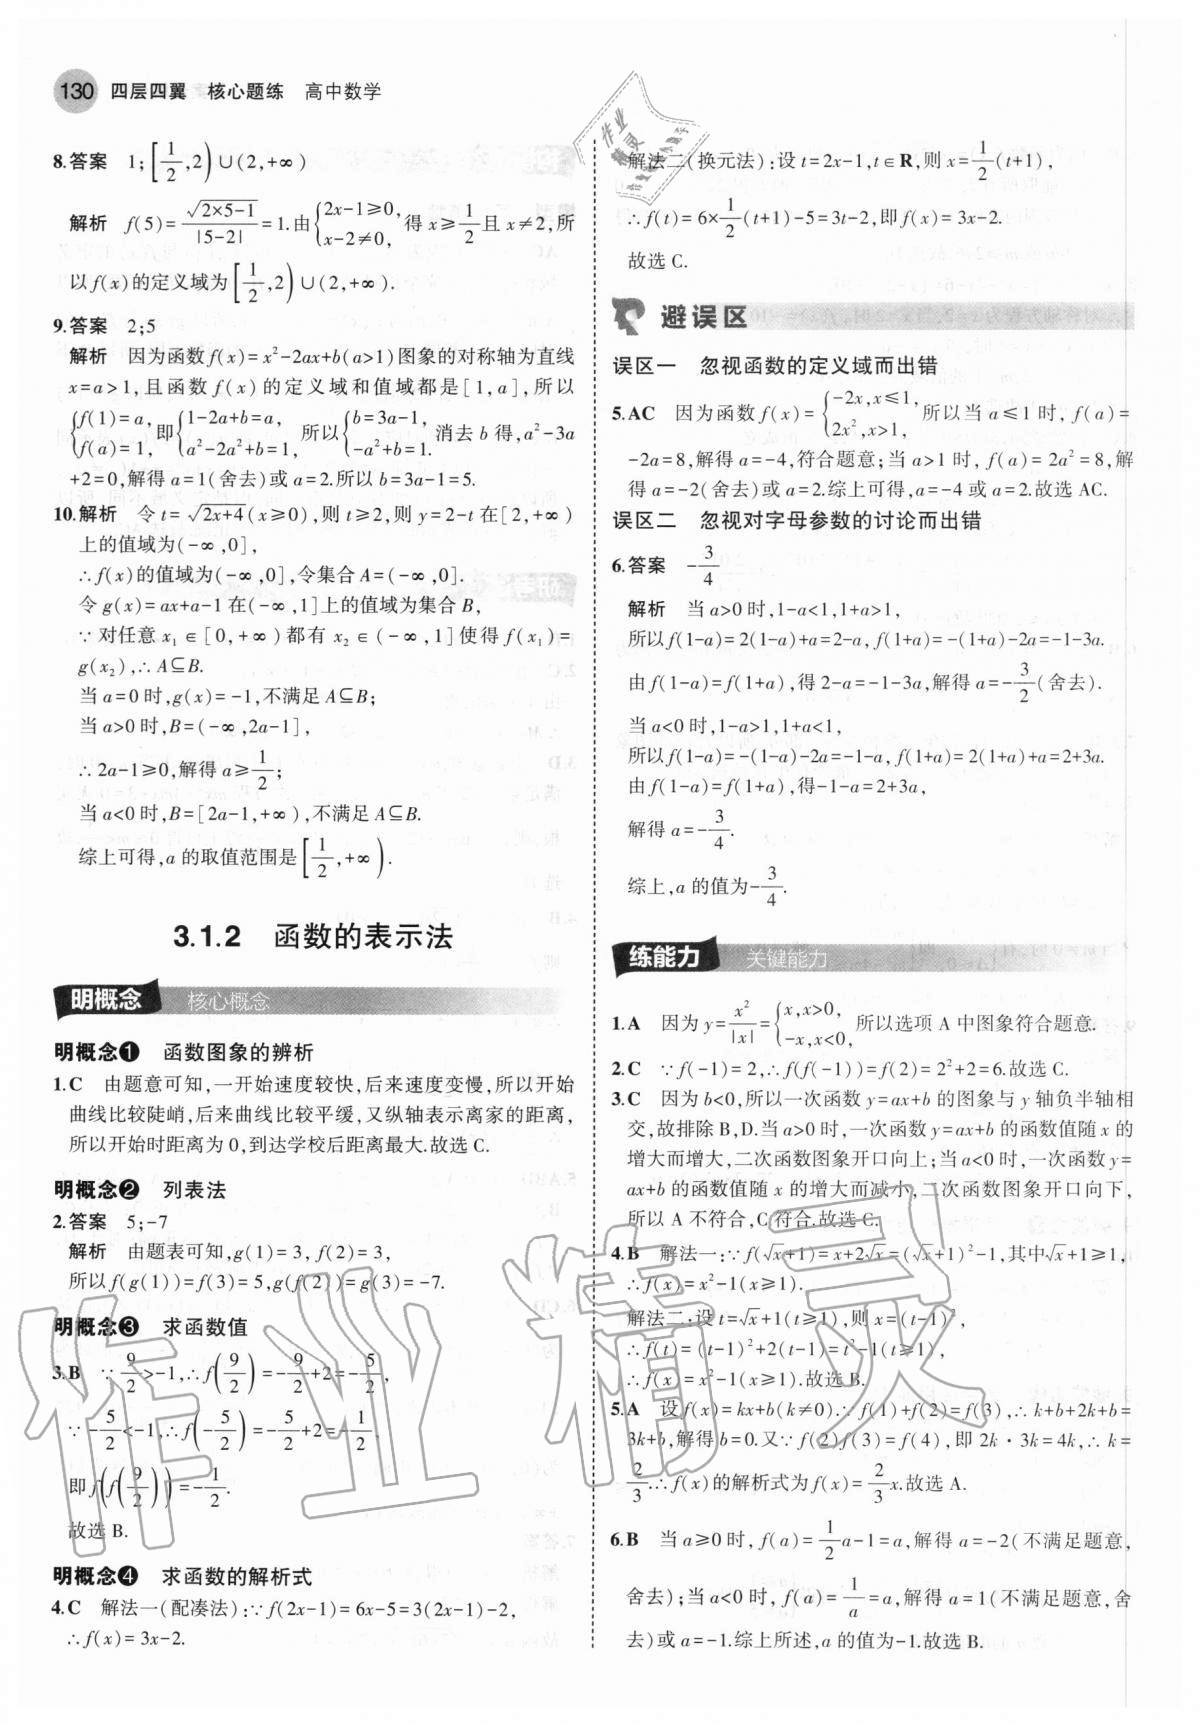 130 四层四翼 核心题练 高中数学
8.答案 1;[1/2,2)∪(2,+∞)
解析 f(5)=√(2×5-1)/|5-2|=1.由{2x-1≥0, x-2≠0,得 x≥1/2且 x≠2,所
以 f(x)的定义域为[1/2,2)∪(2,+∞).
9.答案 2;5
解析 因为函数 f(x)=x²-2ax+b(a>1)图象的对称轴为直线
x=a>1,且函数 f(x)的定义域和值域都是[1,a],所以
{f(1)=a, f(a)=1,即{1-2a+b=a, a²-2a²+b=1,所以{b=3a-1, -a²+b=1.消去 b 得,a²-3a
+2=0,解得 a=1(舍去)或 a=2.所以 b=3a-1=5.
10.解析 令 t=√(2x+4)(x≥0),则 t≥2,则 y=2-t 在[2,+∞)
上的值域为(-∞,0],
∴f(x)的值域为(-∞,0],令集合 A=(-∞,0].
令 g(x)=ax+a-1 在(-∞,1]上的值域为集合 B,
∵对任意 x₁∈[0,+∞)都有 x₂∈(-∞,1]使得 f(x₁)=
g(x₂),∴A⊆B.
当 a=0 时,g(x)=-1,不满足 A⊆B;
当 a>0 时,B=(-∞,2a-1],
∴2a-1≥0,解得 a≥1/2;
当 a<0 时,B=[2a-1,+∞),不满足 A⊆B.
综上可得,a 的取值范围是[1/2,+∞).
3.1.2 函数的表示法
明概念 核心概念
明概念❶ 函数图象的辨析
1.C 由题意可知,一开始速度较快,后来速度变慢,所以开始
曲线比较陡峭,后来曲线比较平缓,又纵轴表示离家的距离,
所以开始时距离为 0,到达学校后距离最大.故选 C.
明概念❷ 列表法
2.答案 5;-7
解析 由题表可知,g(1)=3,f(2)=3,
所以 f(g(1))=f(3)=5,g(f(2))=g(3)=-7.
明概念❸ 求函数值
3.B ∵9/2>-1,∴f(9/2)=-9/2+2=-5/2,
∵-5/2<-1,∴f(-5/2)=-5/2+2=-1/2.
即 f(f(9/2))=-1/2.
故选 B.
明概念❹ 求函数的解析式
4.C 解法一(配凑法):∵f(2x-1)=6x-5=3(2x-1)-2,
∴f(x)=3x-2.
解法二(换元法):设 t=2x-1,t∈R,则 x=1/2(t+1),
∴f(t)=6×1/2(t+1)-5=3t-2,即 f(x)=3x-2.
故选 C.
避误区
误区一 忽视函数的定义域而出错
5.AC 因为函数 f(x)={-2x,x≤1, 2x²,x>1,所以当 a≤1 时,f(a)=
-2a=8,解得 a=-4,符合题意;当 a>1 时,f(a)=2a²=8,解
得 a=-2(舍去)或 a=2.综上可得,a=-4 或 a=2.故选 AC.
误区二 忽视对字母参数的讨论而出错
6.答案 -3/4
解析 当 a>0 时,1-a<1,1+a>1,
所以 f(1-a)=2(1-a)+a=2-a,f(1+a)=-(1+a)-2a=-1-3a.
由 f(1-a)=f(1+a),得 2-a=-1-3a,解得 a=-3/2(舍去).
当 a<0 时,1-a>1,1+a<1,
所以 f(1-a)=-(1-a)-2a=-1-a,f(1+a)=2(1+a)+a=2+3a.
由 f(1-a)=f(1+a),得-1-a=2+3a,
解得 a=-3/4.
综上,a 的值为-3/4.
练能力 关键能力
1.A 因为 y=x²/|x|={x,x>0, -x,x<0,所以选项 A 中图象符合题意.
2.C ∵f(-1)=2,∴f(f(-1))=f(2)=2²+2=6.故选 C.
3.C 因为 b<0,所以一次函数 y=ax+b 的图象与 y 轴负半轴相
交,故排除 B,D.当 a>0 时,一次函数 y=ax+b 的函数值随 x 的
增大而增大,二次函数图象开口向上;当 a<0 时,一次函数 y=
ax+b 的函数值随 x 的增大而减小,二次函数图象开口向下,
所以 A 不符合,C 符合.故选 C.
4.B 解法一:∵f(√x+1)=x+2√x=(√x+1)²-1,其中√x+1≥1,
∴f(x)=x²-1(x≥1).
解法二:设 t=√x+1(t≥1),则 x=(t-1)²,
∴f(t)=(t-1)²+2(t-1)=t²-1(t≥1),
∴f(x)=x²-1(x≥1).故选 B.
5.A 设 f(x)=kx+b(k≠0).∵f(1)+f(2)=f(3),∴k+b+2k+b=
3k+b,解得 b=0.又∵f(2)f(3)=f(4),即 2k·3k=4k,∴k=
2/3.∴f(x)的解析式为 f(x)=2/3x.故选 A.
6.B 当 a≥0 时,f(a)=1/2a-1=a,解得 a=-2(不满足题意,
舍去);当 a<0 时,f(a)=1/a=a,解得 a=1(不满足题意,舍
去)或 a=-1.综上所述,a 的值为-1.故选 B.
作业精灵